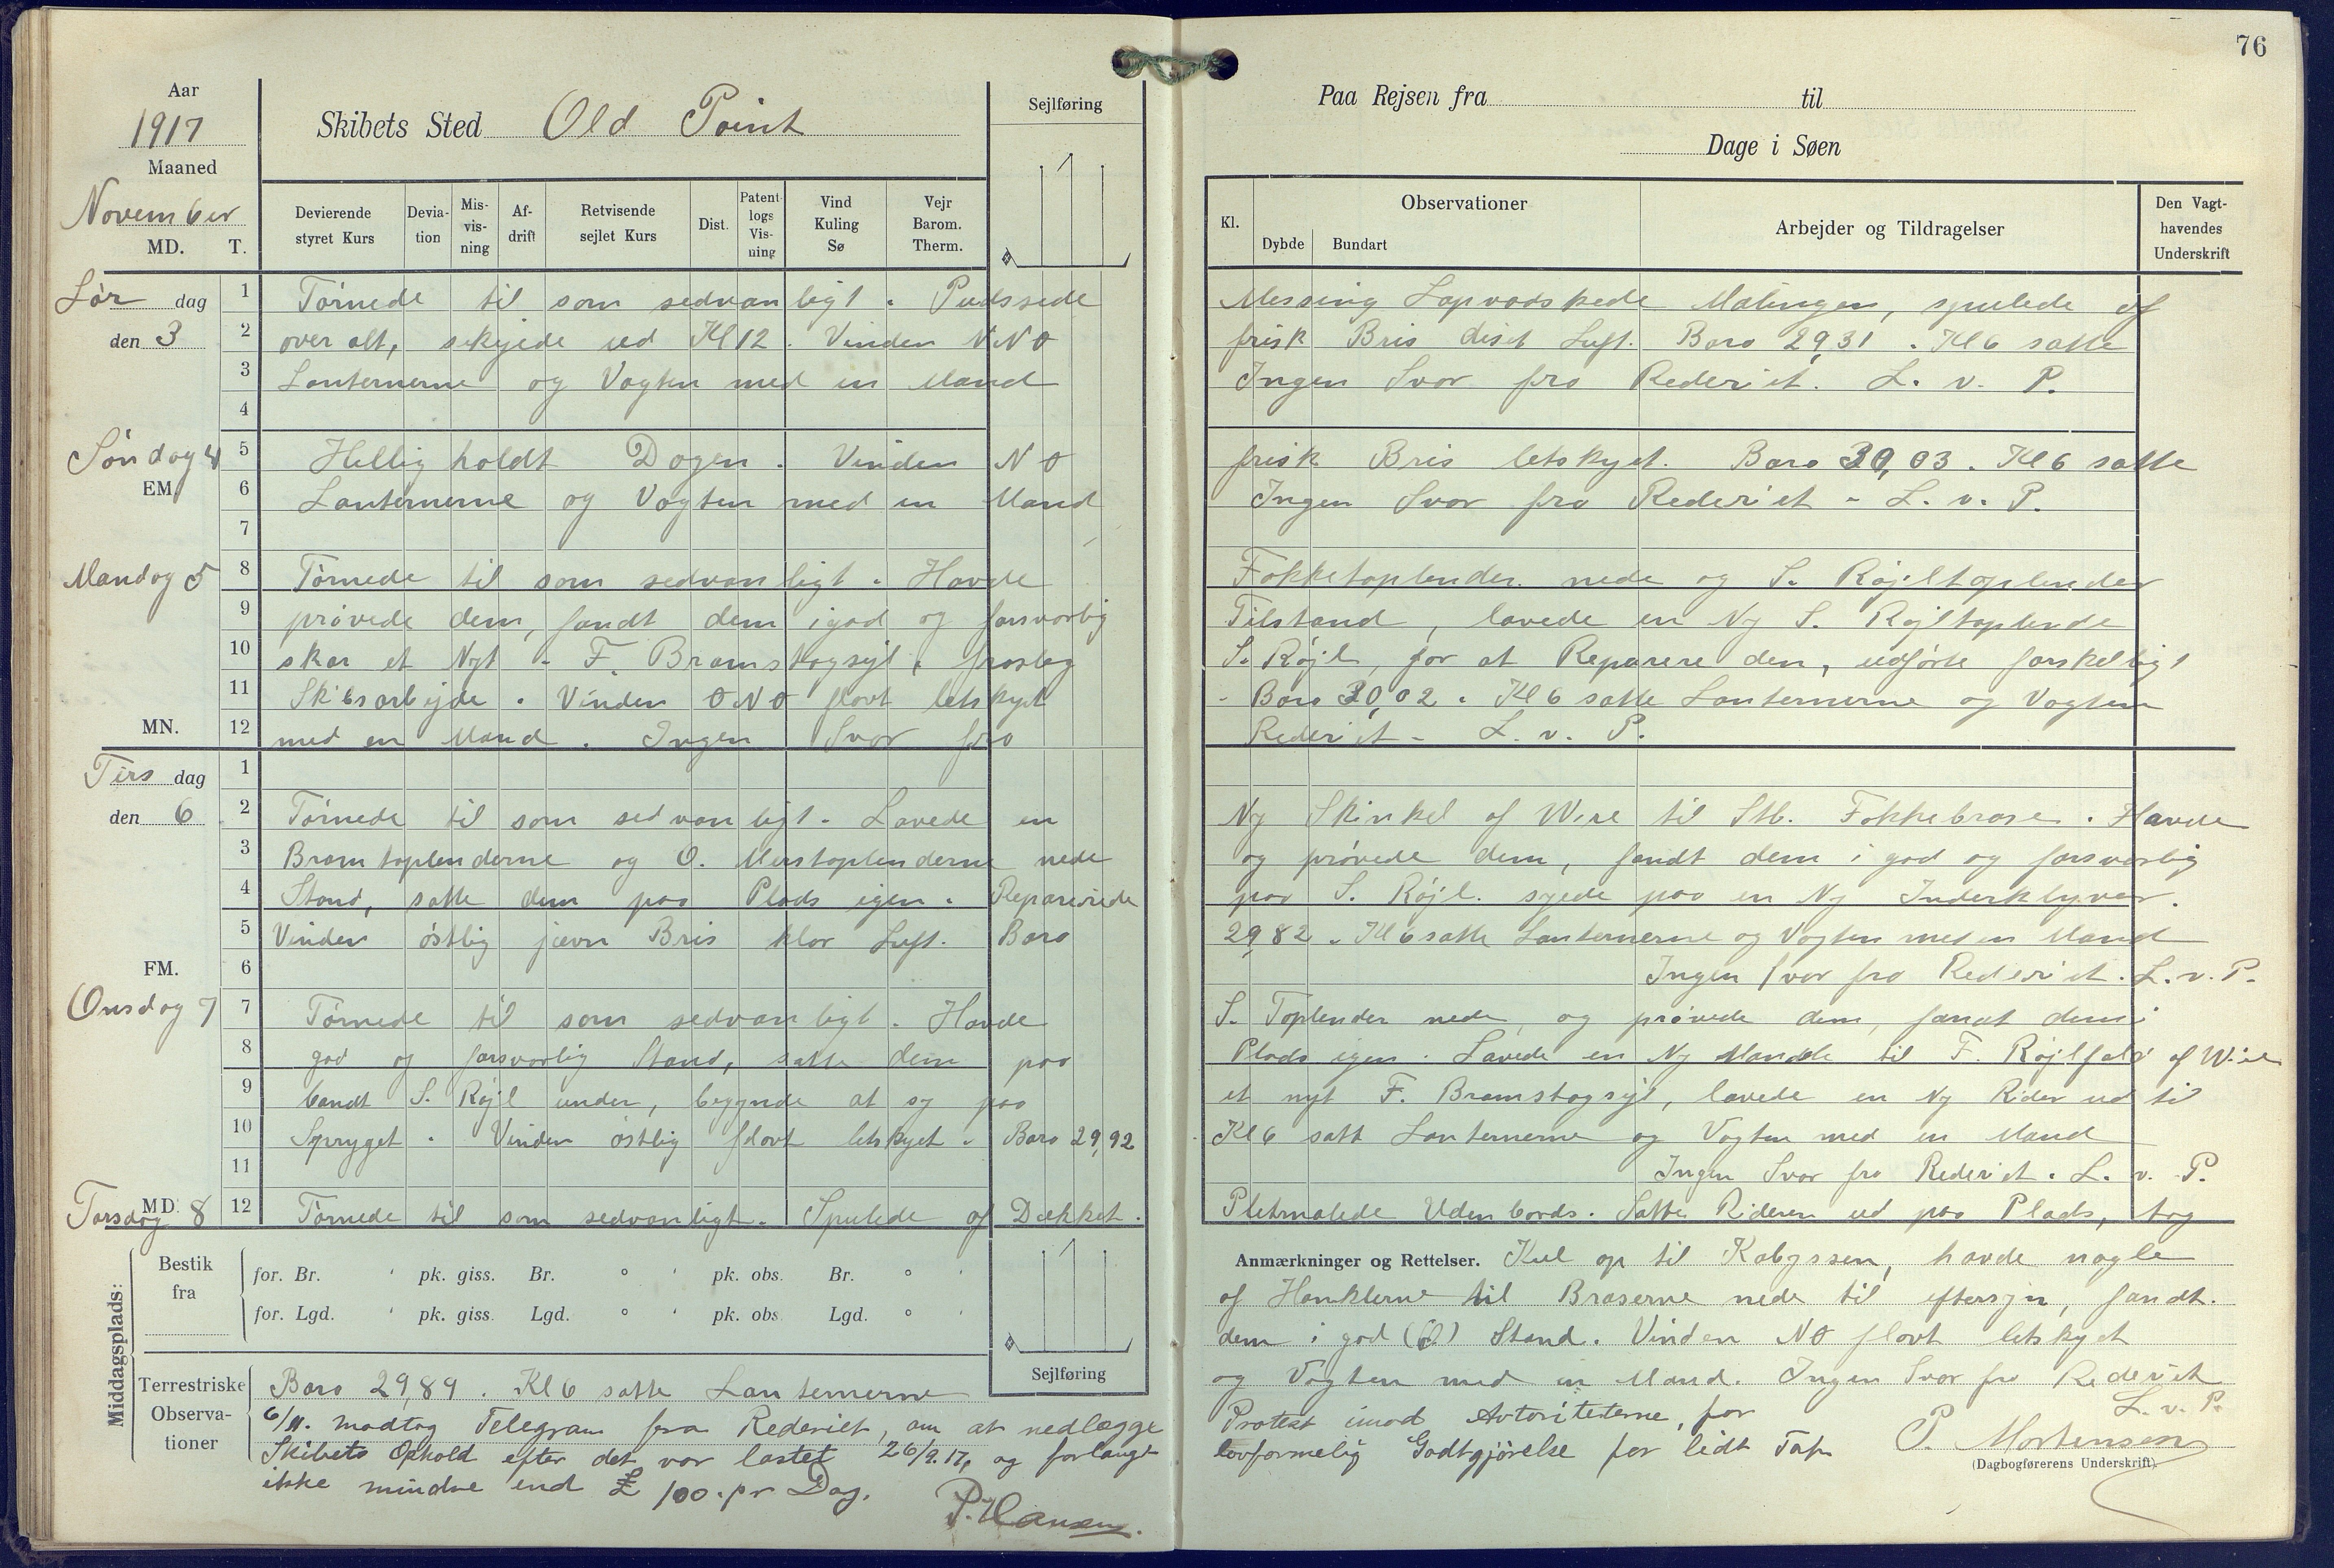 76
Aar
1917
Maaned
November
MD. T.
Skibets Sted Old Point
Sejlføring
Paa Rejsen fra til
Dage i Søen
Devierende styret Kurs
Deviation
Misvisning
Afdrift
Retvisende sejlet Kurs
Dist.
Patentlogs Visning
Vind Kuling Sø
Vejr Barom. Therm.
Kl.
Observationer
Dybde Bundart
Arbejder og Tildragelser
Den Vagthavendes Underskrift
Lør dag den 3
1 Tørnede til som sedvanligt. Pudssede Messing Sapvadskede Malingen, spulede af
2 over alt, skejede ud Kl 12. Vinden NNO frisk Bris diset Luft. Baro 29,31. Kl 6 satte
3 Lanternerne og Vagten med en Mand Ingen Svar fra Rederiet. L. v. P.
4
Søndag 4
EM
5 Hellig holdt Dagen. Vinden NO frisk Bris letskyet. Baro 30,03. Kl 6 satte
6 Lanternerne og Vagten med en Mand Ingen Svar fra Rederiet - L. v. P.
7
Mandag 5
8 Tørnede til som sedvanligt. Havde Fokketoplender nede og S. Røjltoplender
9 prøvede dem, fandt dem i god og forsvarlig Tilstand, lavede en Ny S. Røjltoplende
10 skar et Nyt - F. Bramstagsejl, fraslog S. Røjl, for at Reparere den, udførte forskelligt
11 Skibsarbejde. Vinden ONO flovt letskyet - Baro 30,02. Kl 6 satte Lanternerne og Vagten
MN. 12 med en Mand. Ingen Svar fra Rederiet - L. v. P.
Tirs dag den 6
1
2 Tørnede til som sedvanligt. Lavede en Ny Skinkel af Wire til Stb. Fokkebrase. Havde
3 Bramtoplenderne og O. Merstoplenderne nede og prøvede dem, fandt dem i god og forsvarlig
4 Stand, satte dem paa Plads igen. Reparerede paa S. Røjl. syede paa en Ny Inderklyver.
5 Vinden østlig jævn Bris klar Luft. Baro 29,82. Kl 6 satte Lanternerne og Vagten med en Mand
FM. 6 Ingen Svar fra Rederiet. L. v. P.
Onsdag 7
7 Tørnede til som sedvanligt. Havde S. Toplender nede, og prøvede dem, fandt dem i
8 god og forsvarlig Stand, satte dem paa Plads igen. Lavede en Ny Mandle til F. Røjlfald af Wire
9 bandt S. Røjl under, begynde at sy paa et nyt F. Bramstagsejl, lavede en Ny Rider ud til
10 Spryget. Vinden østlig flovt letskyet. Baro 29,92 Kl 6 satt Lanternerne og Vagten med en Mand
11 Ingen Svar fra Rederiet. L. v. P.
Torsdag 8
MD. 12 Tørnede til som sedvanligt. Spulede af Dækket. Pletmalede Udenbords. Satte Rideren ud paa Plads, tog
Middagsplads:
Bestik fra
for. Br. ' pk. giss. Br. ° ' pk. obs. Br. ° '
for. Lgd. ' pk. giss. Lgd. ° ' pk. obs. Lgd. ° '
Sejlføring
Terrestriske Observationer
Baro 29,89. Kl 6 satte Lanternerne
6/11. modtog Telegram fra Rederiet, om at nedlægge
Skibets Ophold efter det var lastet 26/9.17, og forlangt
ikke mindre end £ 100. pr Dag.
P. Hansen.
Anmærkninger og Rettelser. Kul op til Kabyssen, havde nogle
af Hanklerne til Braserne nede til eftersyn, fandt.
dem i god Stand. Vinden NO flovt letskyet
og Vagten med en Mand. Ingen Svar fra Rederiet
L. v. P.
Protest imod Avtoriteterne, for
lovformelig Godtgjørelse for lidt Tap
P. Mortensen
(Dagbogførerens Underskrift).